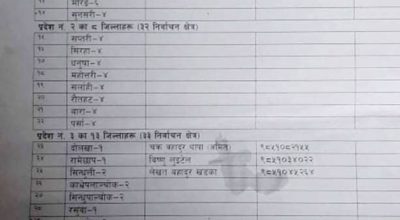 मोरङ-६
सुनसरी-४
प्रदेश न. २ का ८ जिल्लाहरू (३२ निर्वाचन क्षेत्र)
१५ सप्तरी-४
१६ सिरहा-४
१७ धनुषा-४
१८ महोत्तरी-४
१९ सर्लाही-४
२० रौतहट-४
२१ बारा-४
२२ पर्सा-४
प्रदेश न. ३ का १३ जिल्लाहरू (३३ निर्वाचन क्षेत्र)
२३ दोलखा-१ चक्र बहादुर थापा (अमित) ९८५१०८२१५५
२४ रामेछाप-१ विष्णु लुइटेल ९८५१०३४०२२
२५ सिन्धुली-२ लेखत बहादुर खडका ९८५१०४५२६४
२६ काभ्रेपलान्चोक-२
२७ सिन्धुपाल्चोक-२
२८ रसुवा-१